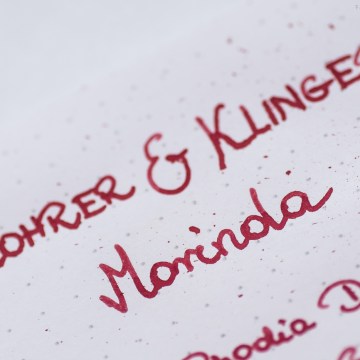 ROHRER & KLINGE
Morinda
Rhodia D